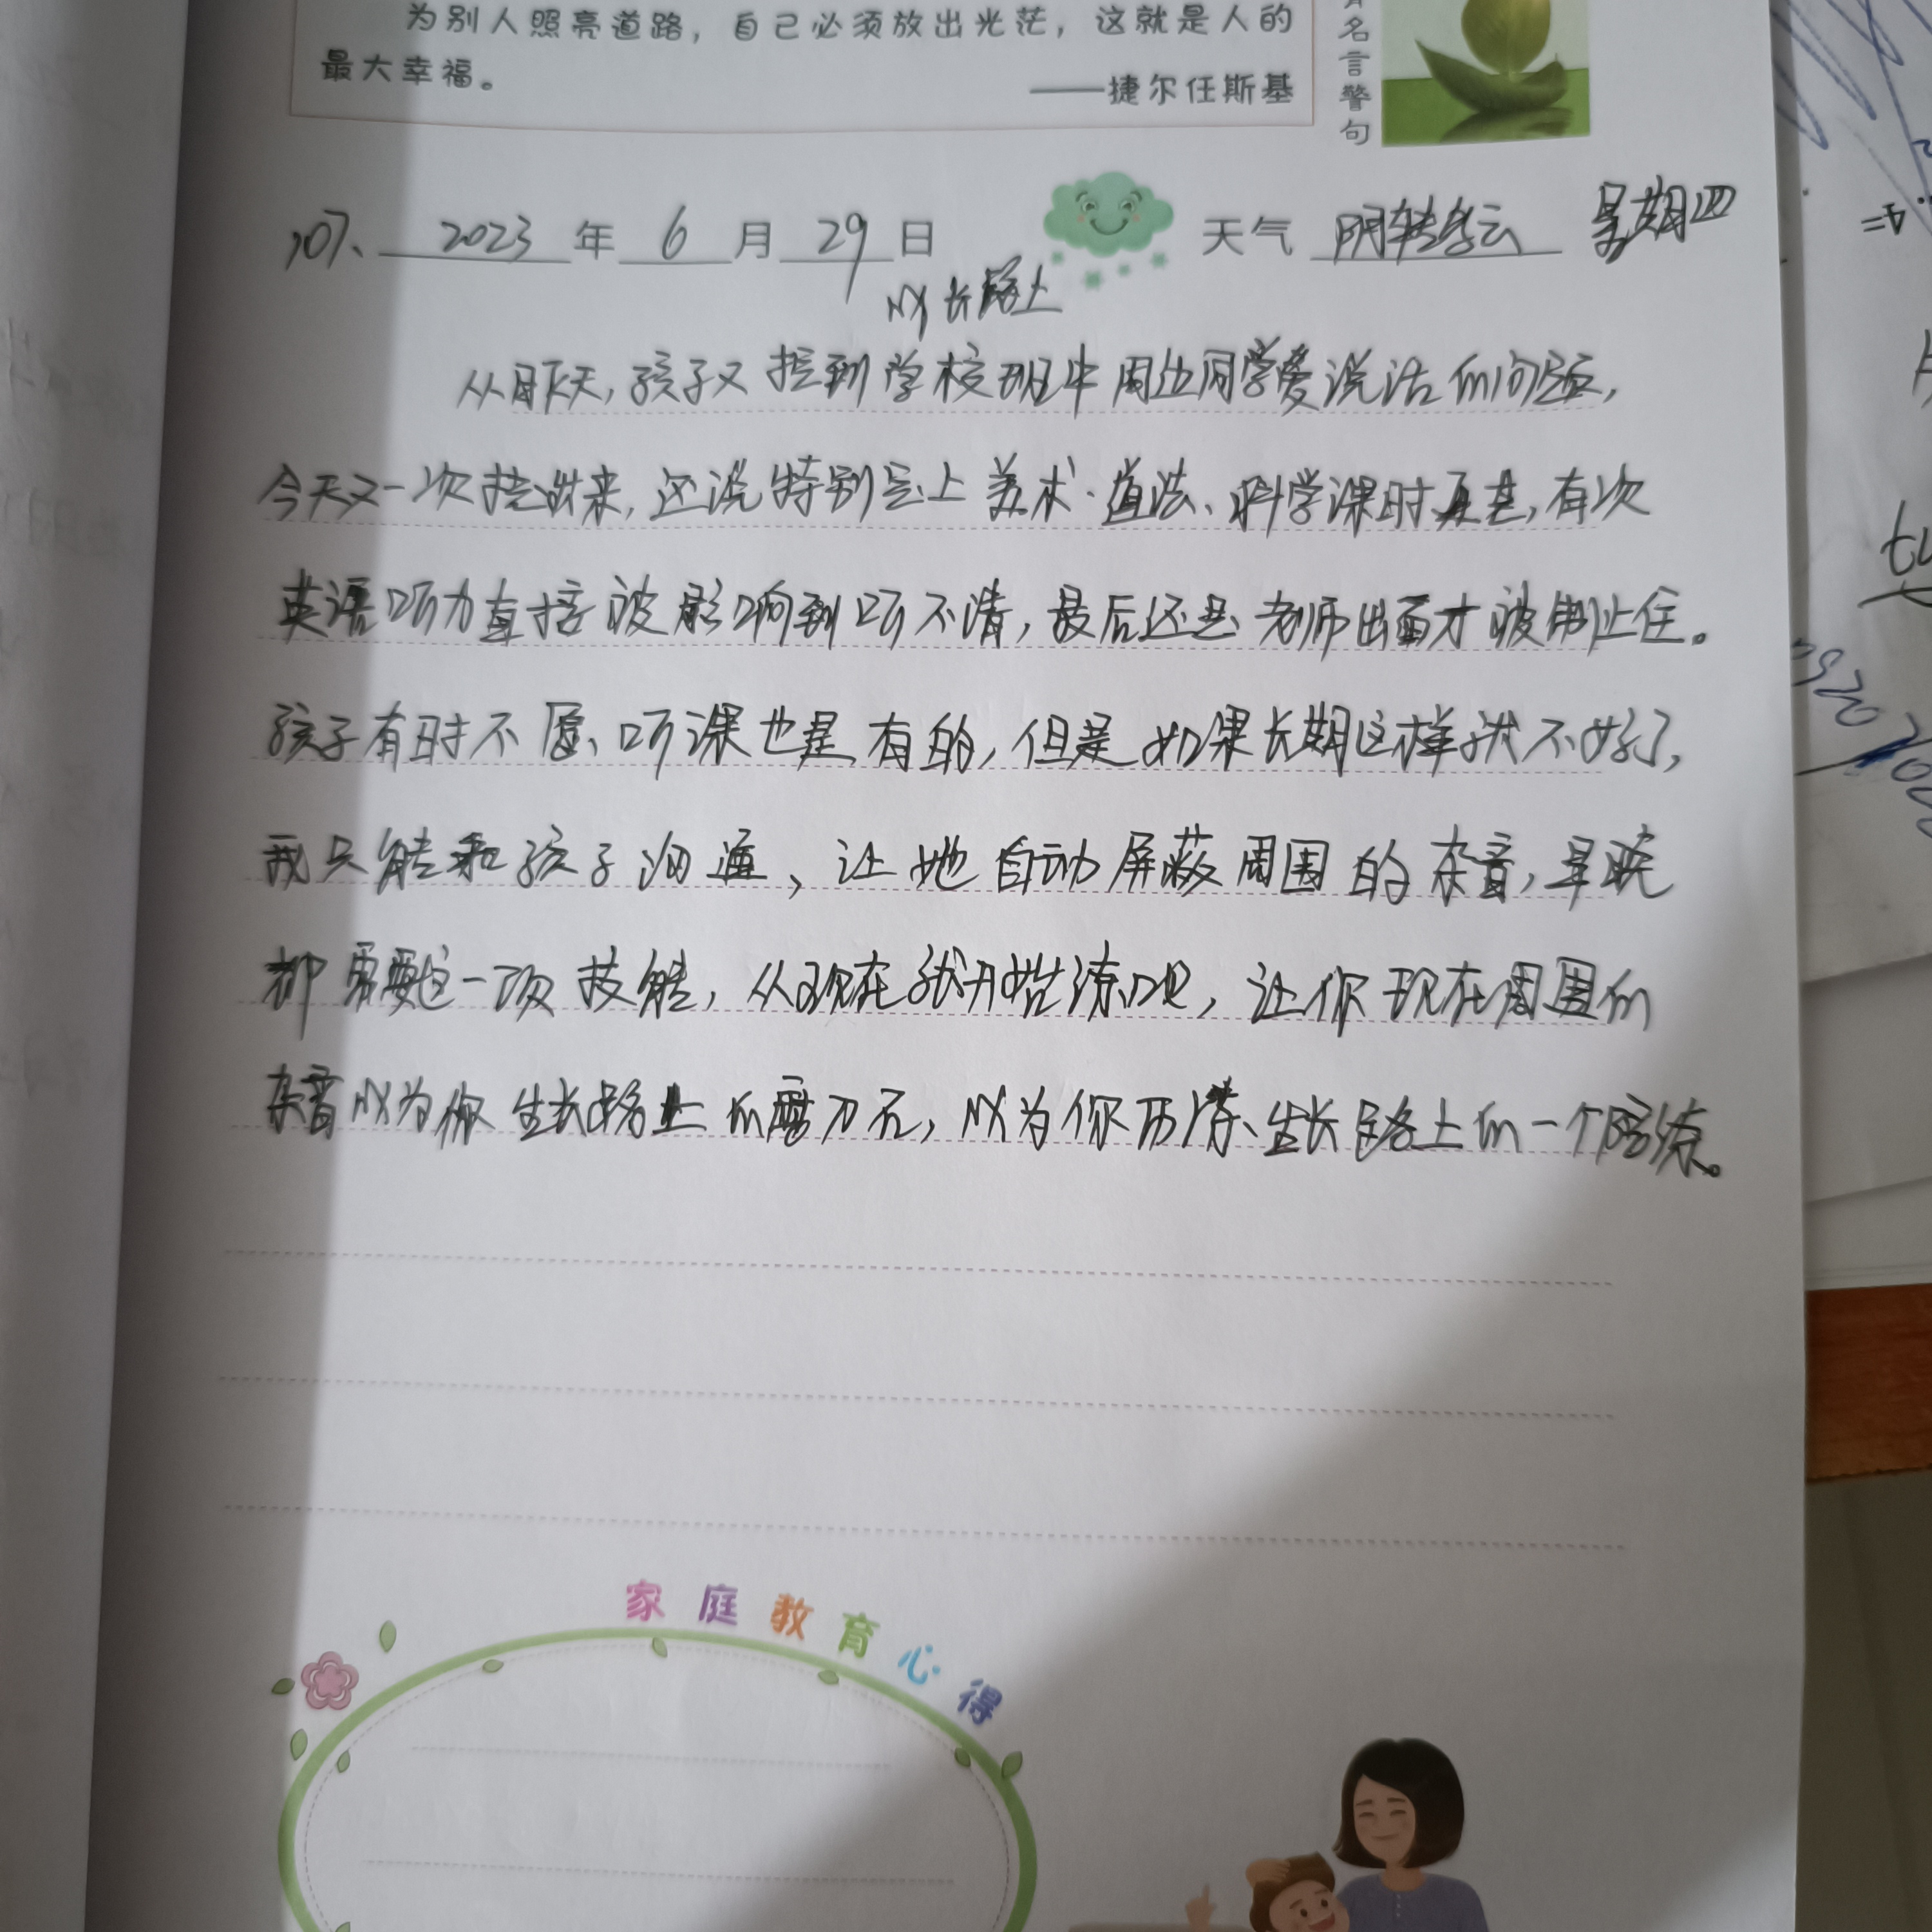 为别人照亮道路，自己必须放出光茫，这就是人的
最大幸福。
——捷尔任斯基
名言警句
107、2023年6月29日 天气 阴转多云 星期四
成长路上
从昨天，孩子又提到学校班中周边同学爱说话的问题，
今天又一次提出来，还说特别是上美术、道法、科学课时更甚，有次
英语听力直接被影响到听不清，最后还是老师出面才被制止住。
孩子有时不愿听课也是有的，但是如果长期这样就不好了，
我只能和孩子沟通，让她自动屏蔽周围的杂音，早晚
都需要这一项技能，从现在就开始练吧，让你现在周围的
杂音成为你生长路上的磨刀石，成为你历练、生长路上的一个陪练。
家庭教育心得